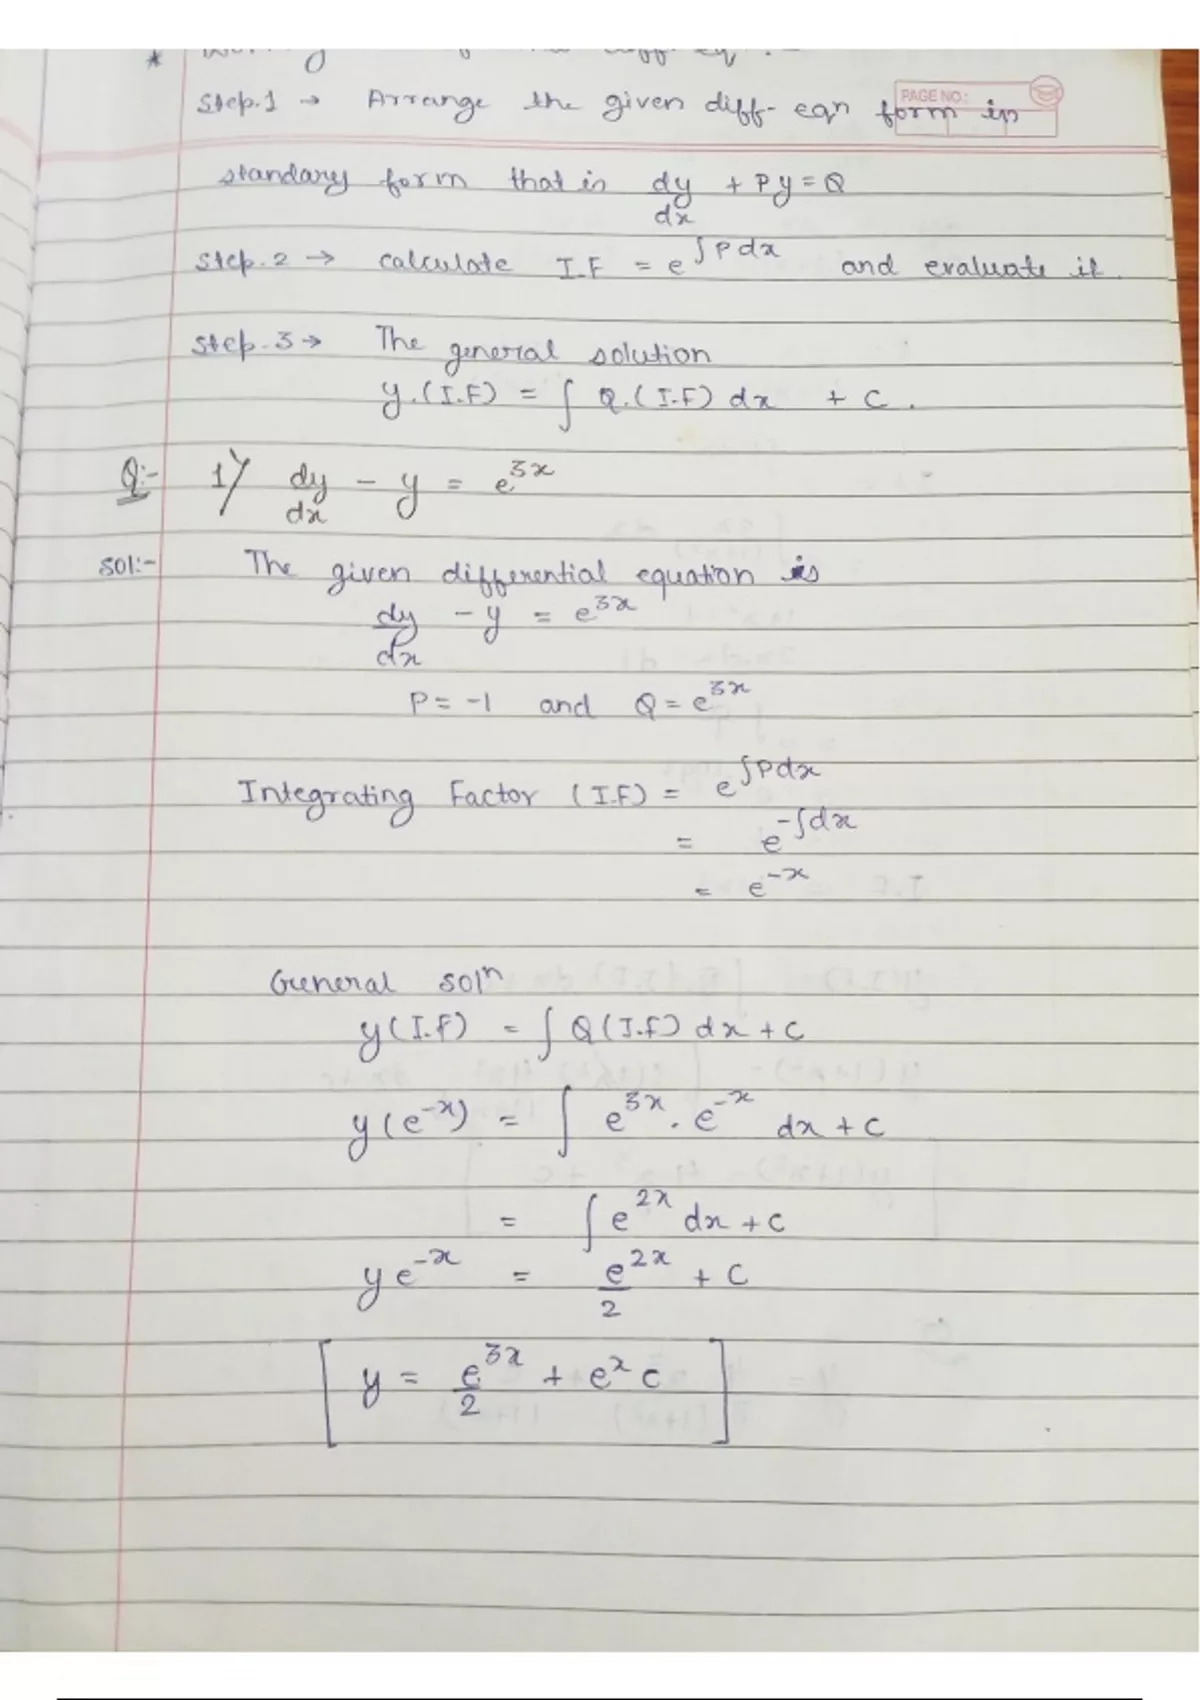 Step.1 → Arrange the given diff- eqn form in
PAGE NO.:
standary form that is dy/dx + Py = Q
Step.2 → calculate I.F = e^∫Pdx and evaluate it.
Step.3 → The general solution
y.(I.F) = ∫ Q.(I.F) dx + C.
Q:- 1) dy/dx - y = e^3x
Sol:- The given differential equation is
dy/dx - y = e^3x
P = -1 and Q = e^3x
Integrating Factor (I.F) = e^∫Pdx
= e^-∫dx
= e^-x
General sol^n
y(I.F) = ∫ Q(I.F) dx + C
y(e^-x) = ∫ e^3x . e^-x dx + C
= ∫ e^2x dx + C
y e^-x = e^2x/2 + C
[ y = e^3x/2 + e^x c ]